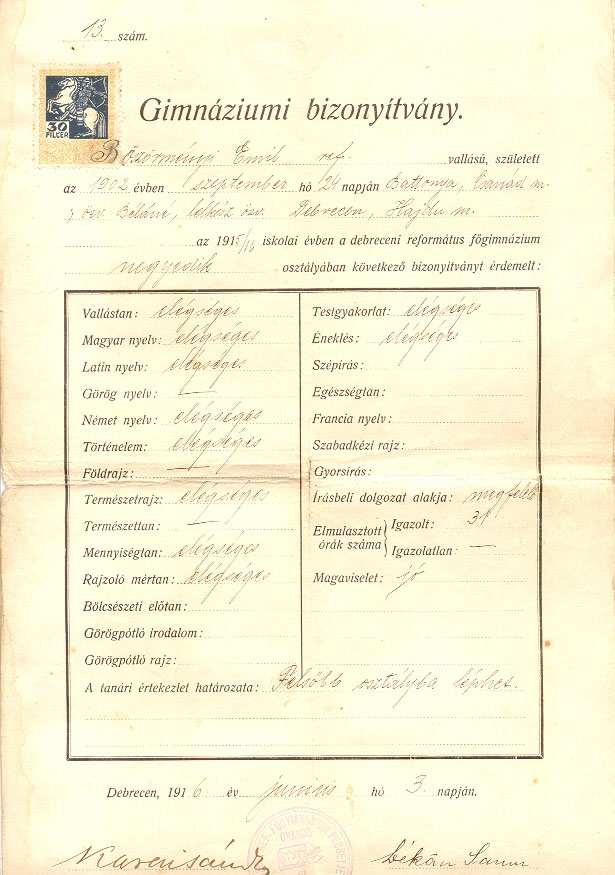 13. szám.
30
FILLÉR
Gimnáziumi bizonyítvány.
Böszörményi Emil ref. vallású, született
az 1902 évben szeptember hó 24 napján Battonya, Csanád m.
özv. Béláné, Debrecen, Hajdu m.
az 1915/16 iskolai évben a debreceni református főgimnázium
negyedik osztályában következő bizonyítványt érdemelt:
Vallástan: elégséges
Magyar nyelv: elégséges
Latin nyelv: elégséges
Görög nyelv: —
Német nyelv: elégséges
Történelem: elégséges
Földrajz: —
Természetrajz: elégséges
Természettan: —
Mennyiségtan: elégséges
Rajzoló mértan: elégséges
Bölcsészeti előtan:
Görögpótló irodalom:
Görögpótló rajz:
Testgyakorlat: elégséges
Éneklés: elégséges
Szépírás:
Egészségtan:
Francia nyelv:
Szabadkézi rajz:
Gyorsírás:
Írásbeli dolgozat alakja: megfelelő
Elmulasztott órák száma
Igazolt: 31
Igazolatlan: —
Magaviselet: jó
A tanári értekezlet határozata: Felsőbb osztályba léphet.
Debrecen, 1916 év junius hó 3. napján.